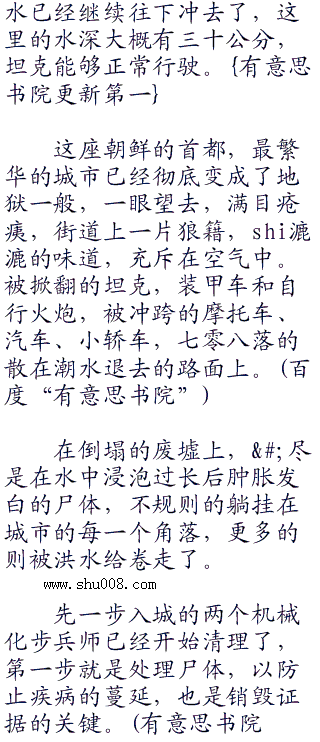 水已经继续往下冲去了，这
里的水深大概有三十公分，
坦克能够正常行驶。{有意思
书院更新第一}
这座朝鲜的首都，最繁
华的城市已经彻底变成了地
狱一般，一眼望去，满目疮
痍，街道上一片狼籍，shi漉
漉的味道，充斥在空气中。
被掀翻的坦克，装甲车和自
行火炮，被冲跨的摩托车、
汽车、小轿车，七零八落的
散在潮水退去的路面上。(百
度“有意思书院”)
在倒塌的废墟上，&#;尽
是在水中浸泡过长后肿胀发
白的尸体，不规则的躺挂在
城市的每一个角落，更多的
则被洪水给卷走了。
www.shu008.com
先一步入城的两个机械
化步兵师已经开始清理了，
第一步就是处理尸体，以防
止疾病的蔓延，也是销毁证
据的关键。(有意思书院